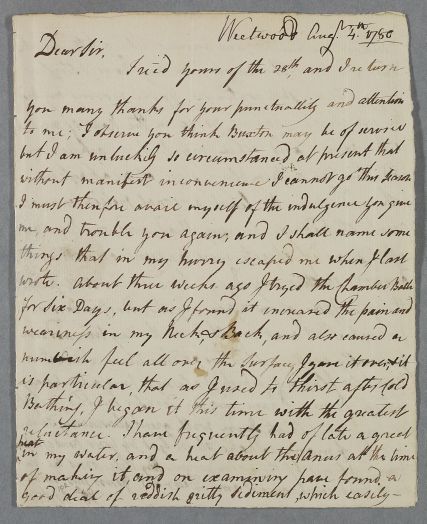 Weetwood Augt. 4th. 1780
Dear Sir,
I rec'd yours of the 28th, and I return
you many thanks for your punctuallity and attention
to me; I observe you think Buxton may be of service
but I am unluckily so circumstanced at present that
without manifest inconvenience I cannot go this season
I must therefore avail myself of the indulgence you give
me, and trouble you again, and I shall name some
things that in my hurry escaped me when I last
wrote. about three weeks ago I tryed the Bath
for Six Days, but as I found it increased the pain and
weariness in my Neck & Back, and also caused a
numbish feel all over the surface, I gave it over, & it
is particular, that as I used to thirst after Cold
Bathing, I began it this time with the greatest
reluctance. I have frequently had of late a great
heat
in my water, and a heat about the anus at the time
of making it, and on examining have found a
good deal of reddish gritty sediment, which easily-